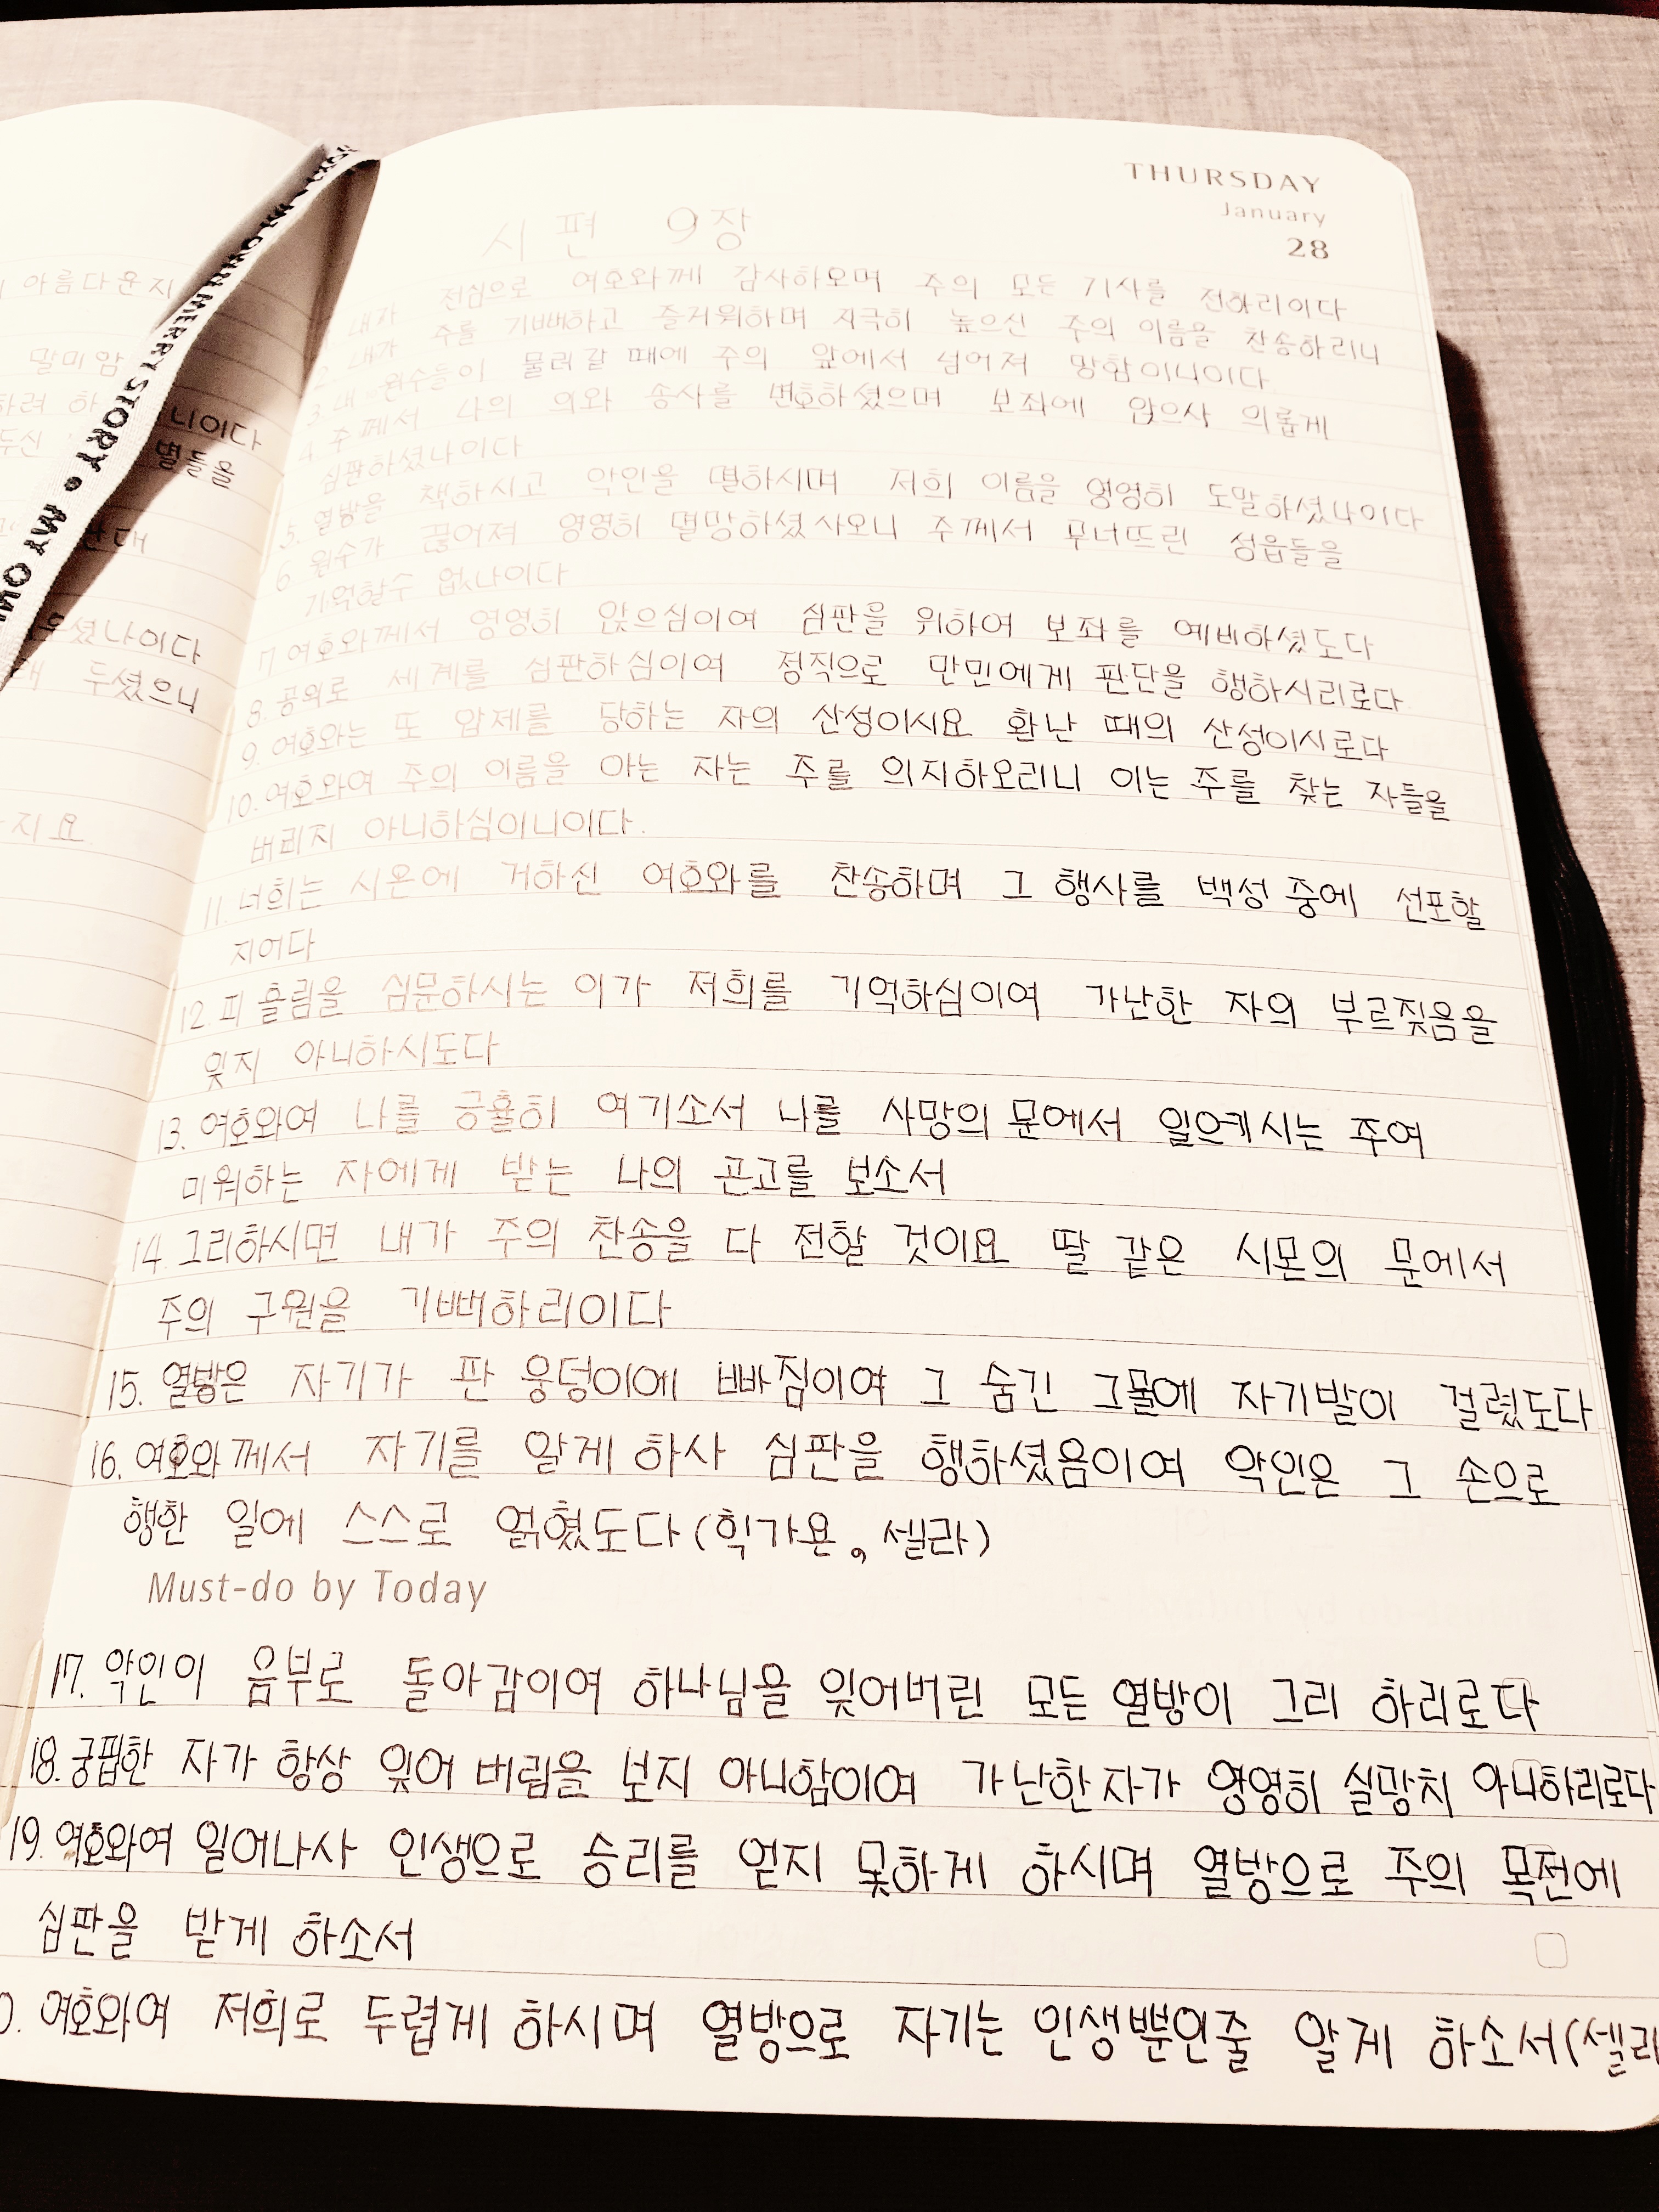 아름다운지
말미암
하려 하 니이다
두신 별들을
한대
우셨나이다
두셨으니
지요
MY OWN MERRY STORY • MY OWN
THURSDAY
January
28
시편 9장
내가 전심으로 여호와께 감사하오며 주의 모든 기사를 전하리이다
2 내가 주를 기뻐하고 즐거워하며 지극히 높으신 주의 이름을 찬송하리니
3. 내 원수들이 물러갈 때에 주의 앞에서 넘어져 망함이니이다
4 주께서 나의 의와 송사를 변호하셨으며 보좌에 앉으사 의롭게
심판하셨나이다
5. 열방을 책하시고 악인을 멸하시며 저희 이름을 영영히 도말하셨나이다
6 원수가 끊어져 영영히 멸망하셨사오니 주께서 무너뜨린 성읍들을
기억할수 없나이다
7 여호와께서 영영히 앉으심이여 심판을 위하여 보좌를 예비하셨도다
8. 공의로 세계를 심판하심이여 정직으로 만민에게 판단을 행하시리로다
9. 여호와는 또 압제를 당하는 자의 산성이시요 환난 때의 산성이시로다
10. 여호와여 주의 이름을 아는 자는 주를 의지하오리니 이는 주를 찾는 자들을
버리지 아니하심이니이다.
11. 너희는 시온에 거하신 여호와를 찬송하며 그 행사를 백성 중에 선포할
지어다
12. 피 흘림을 심문하시는 이가 저희를 기억하심이여 가난한 자의 부르짖음을
잊지 아니하시도다
13. 여호와여 나를 긍휼히 여기소서 나를 사망의 문에서 일으키시는 주여
미워하는 자에게 받는 나의 곤고를 보소서
14. 그리하시면 내가 주의 찬송을 다 전할 것이요 딸 같은 시몬의 문에서
주의 구원을 기뻐하리이다
15. 열방은 자기가 판 웅덩이에 빠짐이여 그 숨긴 그물에 자기발이 걸렸도다
16. 여호와께서 자기를 알게 하사 심판을 행하셨음이여 악인은 그 손으로
행한 일에 스스로 얽혔도다(힉가욘, 셀라)
Must-do by Today
17. 악인이 음부로 돌아감이여 하나님을 잊어버린 모든 열방이 그리 하리로다
18. 궁핍한 자가 항상 잊어 버림을 보지 아니함이여 가난한자가 영영히 실망치 아니하리로다
19. 여호와여 일어나사 인생으로 승리를 얻지 못하게 하시며 열방으로 주의 목전에
심판을 받게 하소서
0. 여호와여 저희로 두렵게 하시며 열방으로 자기는 인생뿐인줄 알게 하소서(셀라